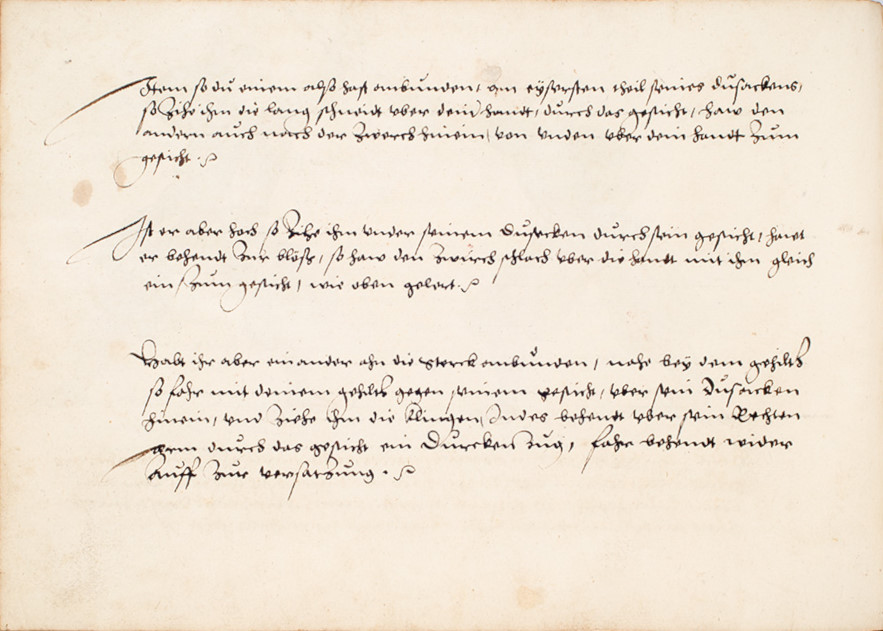 Item so du einem also hast anbunden, am eüsersten theil seines dusackens,
so Zihe ihm die lang schneidt vber dein handt, durch das gesicht, haw den
andern auch nach der Zwerch hinein, von vnden vber dein handt Zum
gesicht.
Ist er aber hoch so Zihe ihm vnder seinem Dusecken durch sein gesicht, hawt
er behendt Zur blösß, so haw den Zwirch schlach vber die handt mit ihm gleich
ein, Zum gesicht, wie oben gelert.
Habt ihr aber ein ander ahn die sterck anbunden, nahe bey dem gehiltz
so fahr mit deinem gehiltz gegen seinem gesicht, vber sein Dusecken
hinein, vnd Ziehe ihm die klingen, Indes behendt vber sein Rechten
arm durch das gesicht ein Durcken Zug, fahr behendt wider
Auff Zur versatzung.